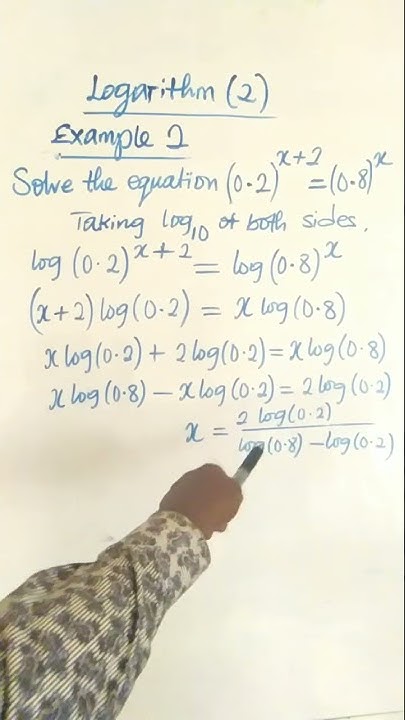 Logarithm (2)
Example 2
Solve the equation (0.2)^{x+2} = (0.8)^x
Taking log_{10} of both sides,
log (0.2)^{x+2} = log (0.8)^x
(x+2) log (0.2) = x log (0.8)
x log (0.2) + 2 log (0.2) = x log (0.8)
x log (0.8) - x log (0.2) = 2 log (0.2)
x = \frac{2 log (0.2)}{log (0.8) - log (0.2)}